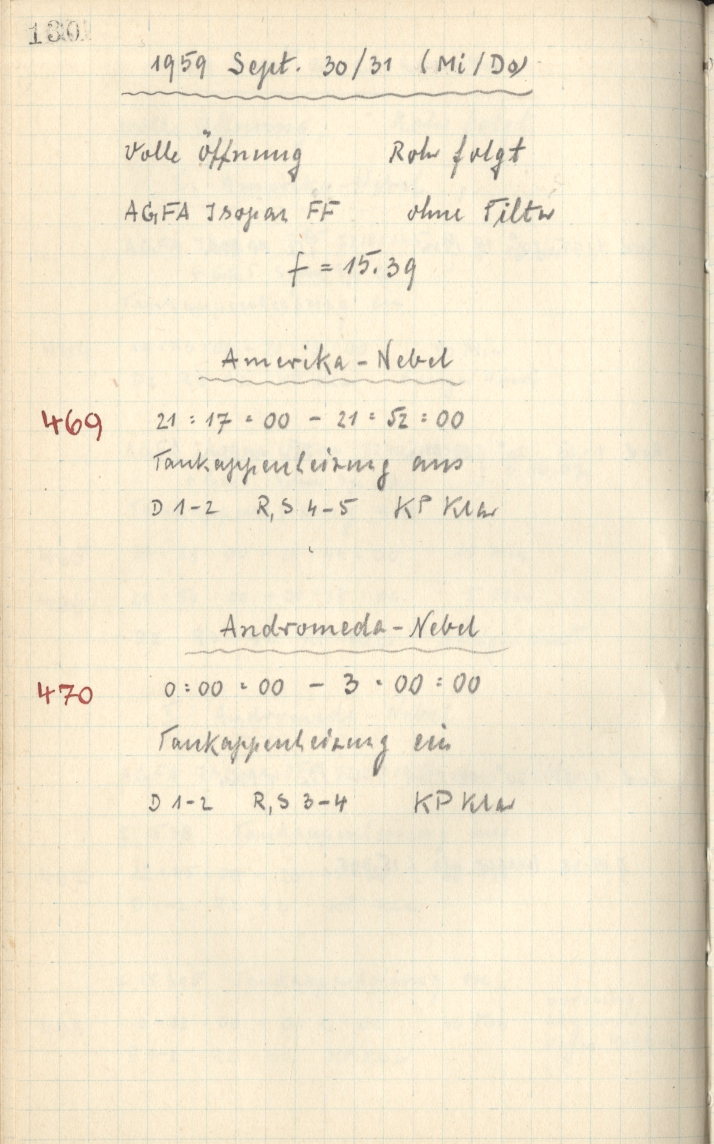 130
1959 Sept. 30/31 (Mi/Do)
Volle Öffnung Rohr folgt
AGFA Isopan FF ohne Filter
f = 15.39
Amerika-Nebel
469 21:17:00 - 21:52:00
Taukappenheizung aus
D 1-2 R,S 4-5 KP Klar
Andromeda-Nebel
470 0:00:00 - 3:00:00
Taukappenheizung ein
D 1-2 R,S 3-4 KP Klar